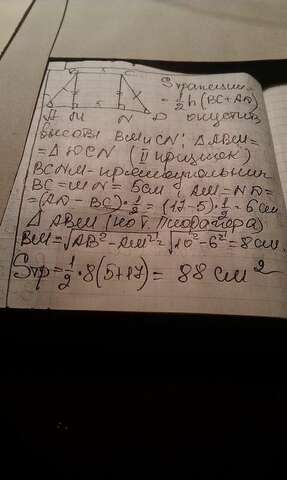 Sтрапеции=
=1/2 h(BC+AD)
A M N D опустив
высоты BM и CN; ΔABM=
=ΔDCN (II признак)
BCNM-прямоугольник
BC=MN=5см AM=ND=
=(AD-BC)·1/2=(17-5)·1/2=6см
ΔABM (по т. Пифагора)
BM=√AB²-AM²=√10²-6²=8см.
Sтр=1/2·8(5+17)= 88 см²